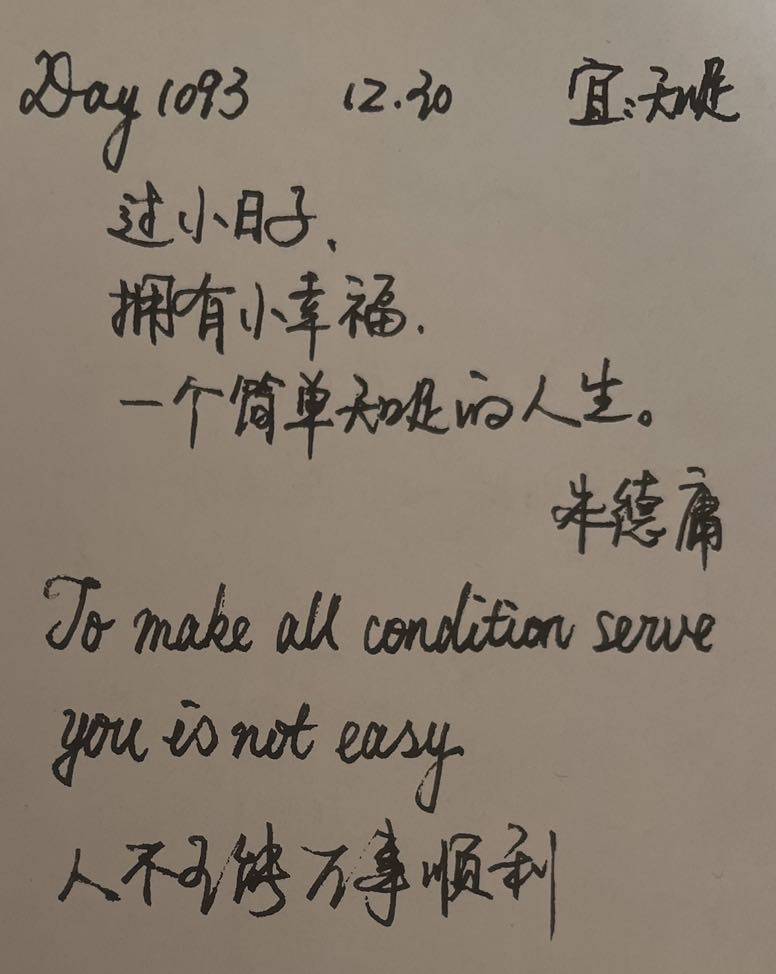 Day 1093 12.30 宜:知足
过小日子、
拥有小幸福.
一个简单知足的人生。
朱德庸
To make all condition serve
you is not easy
人不可能万事顺利